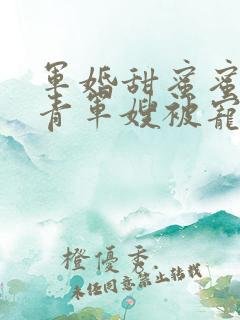 軍婚甜蜜蜜
青軍嫂被寵
橙優秀
未經同意禁止轉載